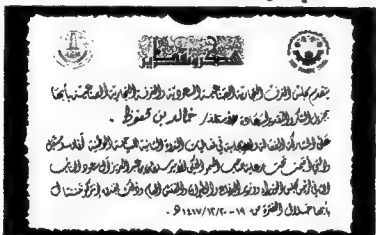 شكر وتقدير
يتقدم مجلس الغرف التجارية الصناعية السعودية والغرفة التجارية الصناعية بأبها
بجزيل الشكر والتقدير لسعادة الأستاذ / خالد بن محفوظ .
على المشاركة الفعالة في فعاليات الندوة الثانية للسياحة الوطنية
والتي أقيمت تحت رعاية صاحب السمو الملكي الأمير سلطان بن عبد العزيز آل سعود النائب
الثاني لرئيس مجلس الوزراء ووزير الدفاع والطيران والمفتش العام وذلك بفندق إنتركونتيننتال
بأبها خلال الفترة من ١٩-٢٠/١٢/١٤١٧هـ .